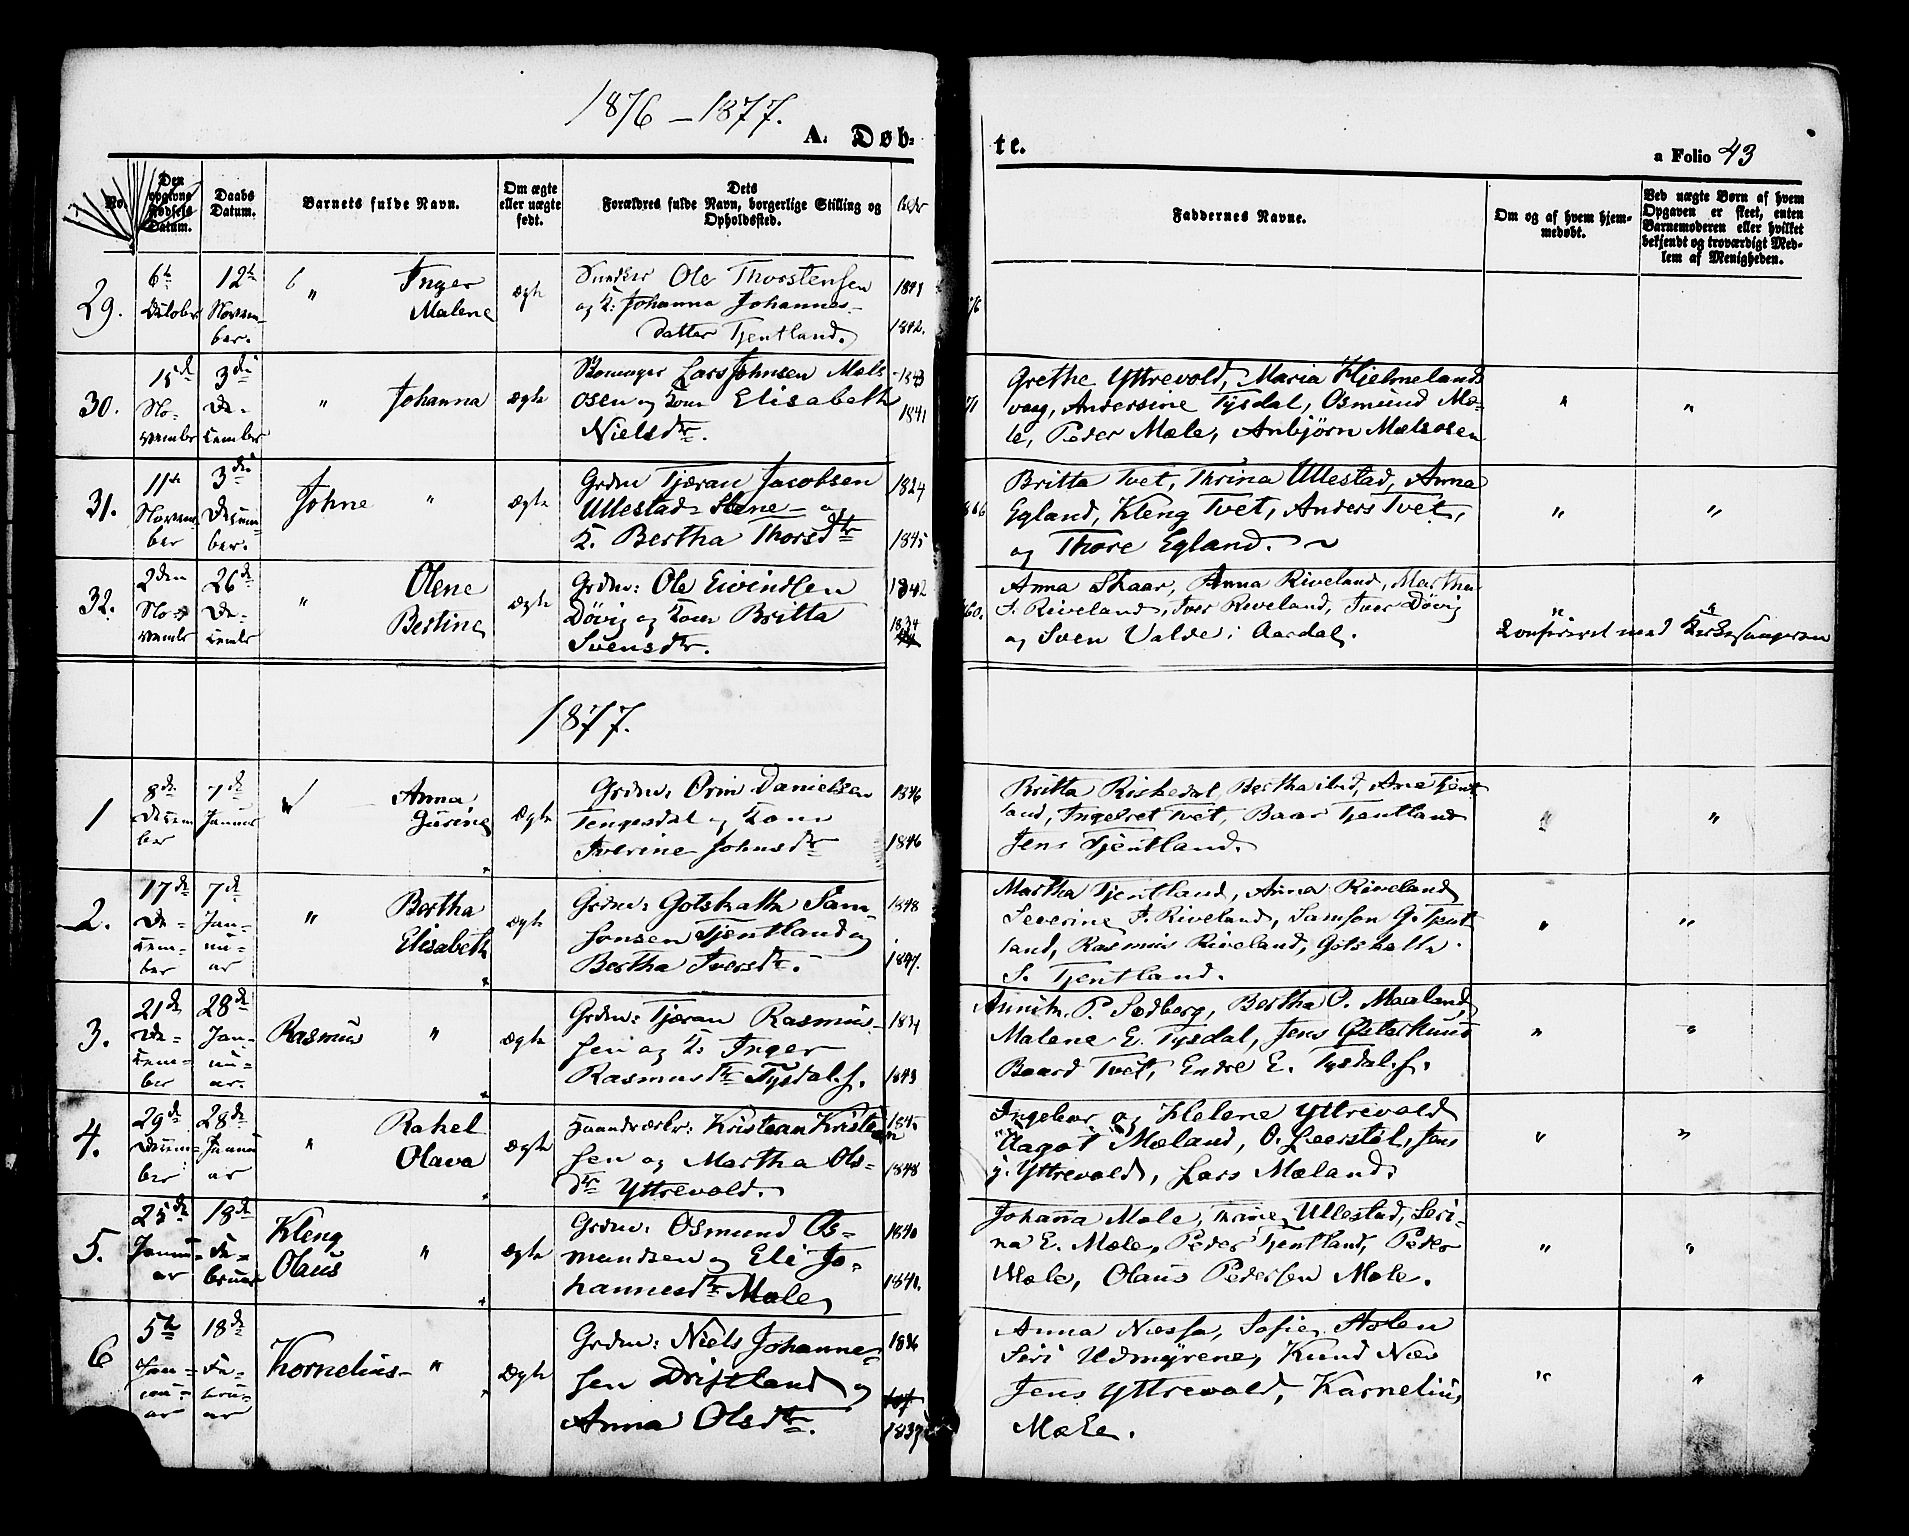 1876 – 1877.
A. Døb-
te.
a Folio 43
No.
Den opgivne Fødsels Datum.
Daabs Datum.
Barnets fulde Navn.
Om ægte eller uægte født.
Dets Forældres fulde Navn, borgerlige Stilling og Opholdssted.
Faddernes Navne.
Om og af hvem hjemmedøbt.
Ved uægte Børn af hvem Opgaven er skeet, enten Barnemoderen eller hvilket bekjendt og troværdigt Medlem af Menigheden.
29.
6te
Oktober
12te
Novem-
ber.
"
Inger
Malene
Ægte
Ole Thorstensen
og K: Johanna Johannes-
datter Tjentland.
1842.
30.
15de
No-
vember
3die
De-
cember
"
Johanna
ægte
Lars Johnsen Mæls-
osen og Kone Elisabeth
Nielsdtr.
1843
1841
Grethe Yttrevold, Maria Hjelmelands
vaag, Andersine Tysdal, Osmund Mæ-
le, Peder Mæle, Anbjørn Mælsosen
"
"
31.
11te
Novem-
ber
3die
Decem-
ber.
Johne
"
ægte
Grdm Tjæran Jacobsen
Ullestad-Stene- og
K. Bertha Thorsdtr
1824
1845
Britta Tvet, Thrina Ullestad, Anna
Egland, Kleng Tvet, Anders Tvet,
og Thore Egland.
"
"
32.
2den
No-
vember
26de
De-
cembr
"
Olene
Bertine
Ægte
Grdm: Ole Eivindsen
Døvig og Kone Britta
Svensdtr.
1842
1834
Anna Skaar, Anna Riveland, Martha
I. Riveland, Iver Riveland, Iver Døvig
og Sven Valde i Aardal.
"
"
Konfereret med Kirkesangeren
1877.
1
8de
Decem
ber
7de
Januar
Anna
Gurine
Ægte
Grdm: Orm Danielsen
Tengesdal og Kone
Iverine Johnsdtr
1846
1846
Britta Riskedal, Bertha ibid, Ane Tjent-
land, Ingebret Tvet, Baar Tjentland
Jens Tjentland.
"
"
2.
17de
De-
cem-
ber
7de
Jan-
nu-
ar
"
Bertha
Elisabeth
ægte
Grdm: Gotskalk Sam-
sonsen Tjentland og
Bertha Iversdtr.
1848
1847.
Martha Tjentland, Anna Riveland
Severine I. Riveland, Samson G. Tjent
land, Rasmus Riveland, Gotskalk
S. Tjentland.
"
"
3.
21de
De-
cem-
ber
28de
Jan-
nu-
ar.
Rasmus
"
ægte
Grdm: Tjæran Rasmus-
sen og K: Inger
Rasmusdtr Tysdal.
1843
P. Sedberg, Bertha O. Mæland,
Malene E. Tysdal, Jens Østerhuus
Baard Tvet, Endre E. Tysdal.
"
"
4.
29de
Decem-
ber
28de
Janu
ar
"
Rahel
Olava
ægte
Haandværkr: Kristian Kristian
sen og Martha Ols-
dtr Yttrevold.
1848
Ingebor og Helene Yttrevold
Aagot Mæland, O. Leerstøl, Jens
J. Yttrevold, Lars Mæland.
"
"
5.
25de
Janu-
ar
18de
Fe-
bruar
Kleng
Olaus
"
ægte
Grdm: Osmund Os-
mundsen og Eli Jo-
hannesdtr Mæle
1840
1840.
Johanna Mæle, Thrine Ullestad, Seri-
na E. Mæle, Peder Tjentland, Peder
Mæle, Olaus Pedersen Mæle.
"
"
6
5te
Jan-
nu-
ar
18de
Fe-
bru-
ar
Kornelius-
"
Ægte
Grdm: Niels Johanne-
sen Driftland og
Anna Olsdtr.
1836
1839
Anna Næssa, Sofie Aslen
Siri Udmyrene, Knud Næs
Jens Yttrevold, Karnelius
Mæle.
"
"